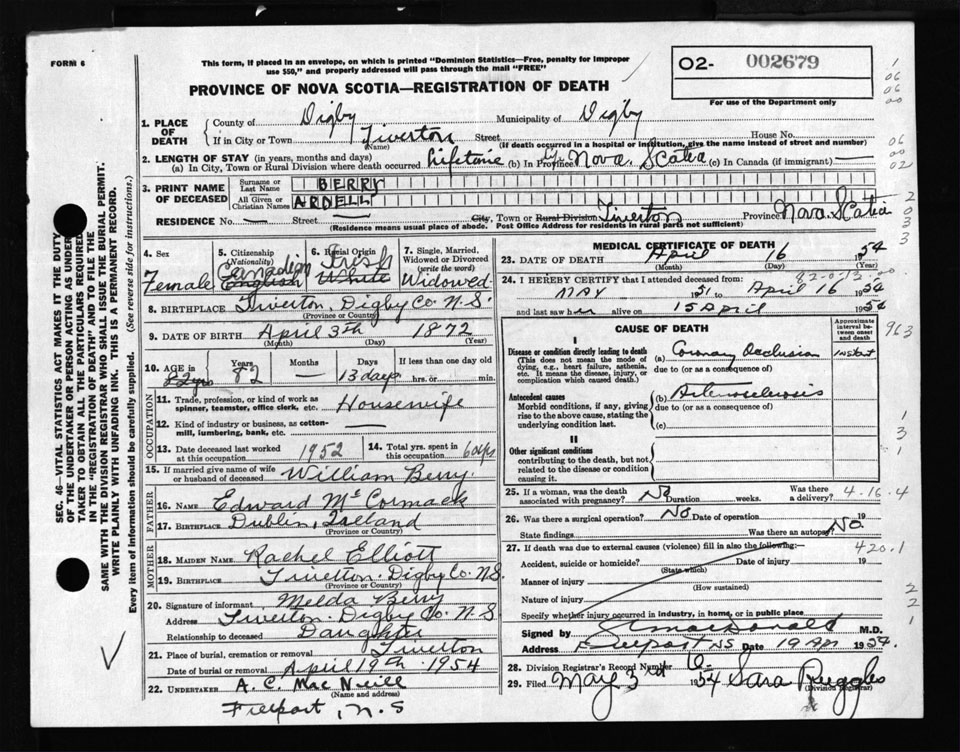 FORM 6
This form, if placed in an envelope, on which is printed "Dominion Statistics—Free, penalty for improper
use $50," and properly addressed will pass through the mail "FREE"
PROVINCE OF NOVA SCOTIA—REGISTRATION OF DEATH
O2- 002679
For use of the Department only
1. PLACE OF DEATH
County of Digby Municipality of Digby
If in City or Town Tiverton (Name) Street House No.
(If death occurred in a hospital or institution, give the name instead of street and number)
2. LENGTH OF STAY (in years, months and days)
(a) In City, Town or Rural Division where death occurred Lifetime (b) In Province Nova Scotia (c) In Canada (if immigrant) —
3. PRINT NAME OF DECEASED
Surname or Last Name BERRY
All Given or Christian Names ARDELL
RESIDENCE No. — Street City, Town or Rural Division Tiverton Province Nova Scotia
(Residence means usual place of abode. Post Office Address for residents in rural parts not sufficient)
4. Sex Female
5. Citizenship (Nationality) Canadian English
6. Racial Origin Irish White
7. Single, Married, Widowed or Divorced (write the word) Widowed
8. BIRTHPLACE Tiverton, Digby Co. N.S.
(Province or Country)
9. DATE OF BIRTH April 3th 1872
(Month) (Day) (Year)
10. AGE in 82 yrs Years 82 Months — Days 13 days If less than one day old hrs. or min.
OCCUPATION
11. Trade, profession, or kind of work as spinner, teamster, office clerk, etc. Housewife
12. Kind of industry or business, as cotton-mill, lumbering, bank, etc. —
13. Date deceased last worked at this occupation 1952
14. Total yrs. spent in this occupation
15. If married give name of wife or husband of deceased William Berry
FATHER
16. NAME Edward McCormack
17. BIRTHPLACE Dublin, Ireland
MOTHER
18. MAIDEN NAME Rachel Elliott
19. BIRTHPLACE Tiverton. Digby Co. N.S.
(Province or Country)
20. Signature of informant Melda Berry
Address Tiverton. Digby Co. N.S.
Relationship to deceased Daughter
21. Place of burial, cremation or removal Tiverton
Date of burial or removal April 19th. 1954
22. UNDERTAKER A. C. MacNeill
(Name and address)
Freeport, N.S
MEDICAL CERTIFICATE OF DEATH
23. DATE OF DEATH April 16 1954
(Month) (Day) (Year)
24. I HEREBY CERTIFY that I attended deceased from:
May 1951 to April 16 1954
and last saw her alive on 15 April 1954
CAUSE OF DEATH
Approximate interval between onset and death
I
Disease or condition directly leading to death
(This does not mean the mode of dying, e.g., heart failure, asthenia, etc. It means the disease, injury, or complication which caused death.)
(a) Coronary Occlusion Instant
due to (or as a consequence of)
Antecedent causes
Morbid conditions, if any, giving rise to the above cause, stating the underlying condition last.
(b) Arteriosclerosis
due to (or as a consequence of)
(c)
II
Other significant conditions
contributing to the death, but not related to the disease or condition causing it.
25. If a woman, was the death associated with pregnancy? No Duration weeks. Was there a delivery? 4-16-4
26. Was there a surgical operation? No Date of operation 19
State findings Was there an autopsy? No
27. If death was due to external causes (violence) fill in also the following:— 420.1
Accident, suicide or homicide? Date of injury 19
(State which)
Manner of injury
(How sustained)
Nature of injury
Specify whether injury occurred in industry, in home, or in public place
Signed by MacDonald M.D.
Address Freeport NS Date 19 Ap 1954
28. Division Registrar's Record Number
29. Filed May 3rd 1954 Sara Ruggles
(Division Registrar)
SEC. 46—VITAL STATISTICS ACT MAKES IT THE DUTY
OF THE UNDERTAKER OR PERSON ACTING AS UNDER-
TAKER TO OBTAIN ALL THE PARTICULARS REQUIRED
IN THE "REGISTRATION OF DEATH" AND TO FILE THE
SAME WITH THE DIVISION REGISTRAR WHO SHALL ISSUE THE BURIAL PERMIT.
WRITE PLAINLY WITH UNFADING INK. THIS IS A PERMANENT RECORD.
Every item of information should be carefully supplied. (See reverse side for instructions.)